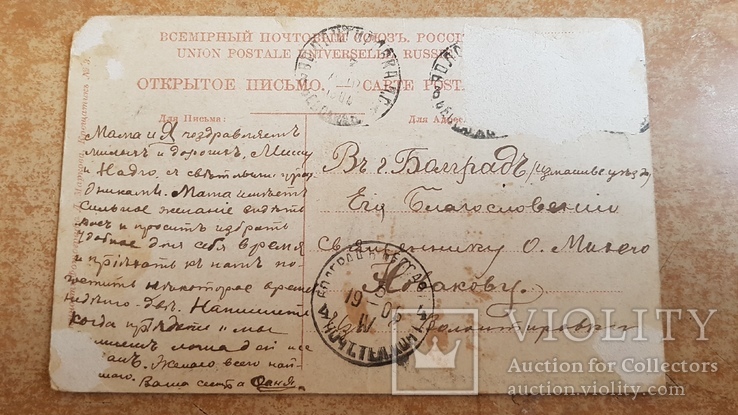 ВСЕМІРНЫЙ ПОЧТОВЫЙ СОЮЗЪ. РОССІ
UNION POSTALE UNIVERSELLE. RUSSI
ОТКРЫТОЕ ПИСЬМО. — CARTE POST
Для Письма:
Для Адрес
Мама и Я поздравляемъ
милыхъ и дорогихъ, Мишу
и Надю, съ свѣтлыми праз
дниками. Мама имѣетъ
сильное желаніе видѣть
васъ и проситъ избрать
удобное для себя время
и пріѣхать къ намъ по
гостить нѣкоторое время
недѣлю-двѣ. Напишите
когда пріѣдете и мы
вышлемъ лошадей
Желаю всего най
Ваша сестра
Въ г. Болградъ
Его Благословенію
Священнику О. Михаго
Новакову
БОЛГРАДЪ
19
IV
VIOLITY
Auction for Collectors
auction.violity.com